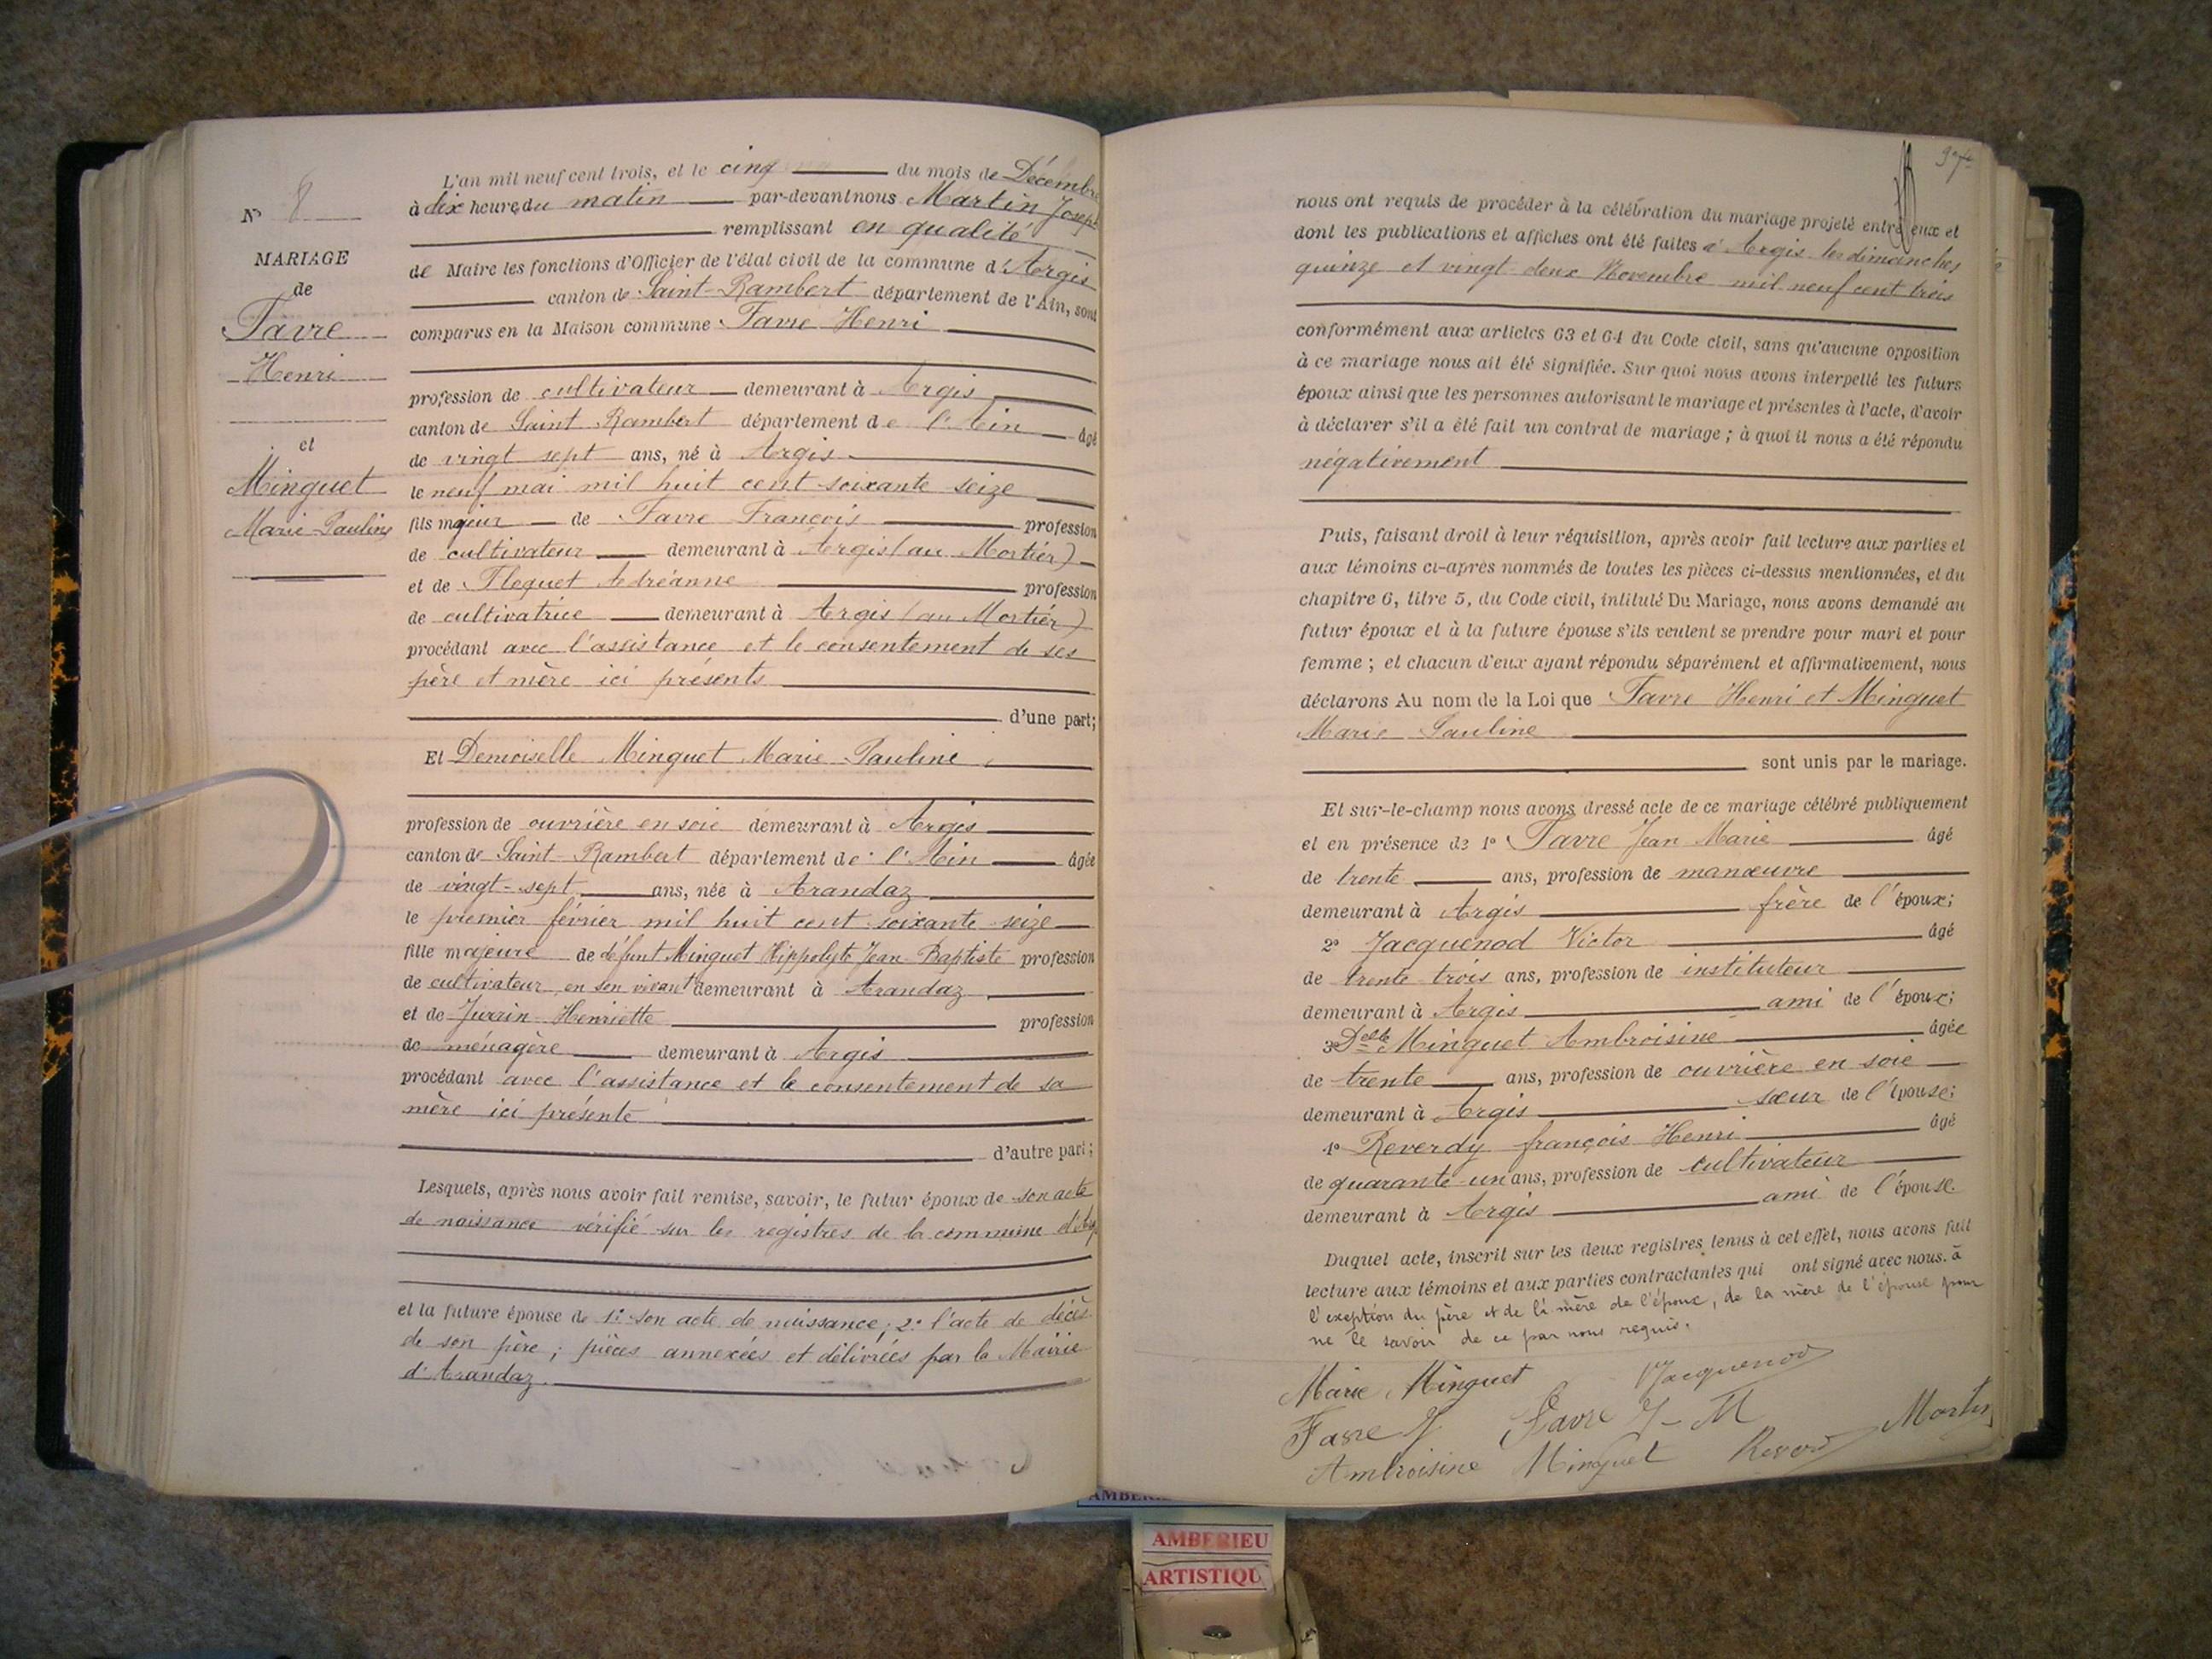 N° 8
MARIAGE
de
Favre
Henri
et
Minguet
Marie-Pauline
L'an mil neuf cent trois, et le cinq du mois de Décembre
à dix heures du matin par-devant nous Martin Joseph
remplissant en qualité
de Maire les fonctions d'Officier de l'état civil de la commune d'Argis
canton de Saint-Rambert département de l'Ain, sont
comparus en la Maison commune Favre Henri
profession de cultivateur demeurant à Argis
canton de Saint Rambert département de l'Ain âgé
de vingt sept ans, né à Argis
le neuf mai mil huit cent soixante seize
fils majeur de Favre François profession
de cultivateur demeurant à Argis (au Mortier)
et de Flequet Adréanne profession
de cultivatrice demeurant à Argis (au Mortiér)
procédant avec l'assistance et le consentement de ses
père et mère ici présents
d'une part;
Et Demoiselle Minguet Marie-Pauline
profession de ouvrière en soie demeurant à Argis
canton de Saint-Rambert département de l'Ain âgée
de vingt-sept ans, née à Arandaz
le premier février mil huit cent soixante-seize
fille majeure de défunt Minguet Hippolyte Jean-Baptiste profession
de cultivateur en son vivant demeurant à Arandaz
et de Juvin Henriette profession
de ménagère demeurant à Argis
procédant avec l'assistance et le consentement de sa
mère ici présente
d'autre part;
Lesquels, après nous avoir fait remise, savoir, le futur époux de son acte
de naissance vérifié sur les registres de la commune
et la future épouse de 1° son acte de naissance; 2° l'acte de décès
de son père; pièces annexées et délivrées par la Mairie
d'Arandaz.
97
nous ont requis de procéder à la célébration du mariage projeté entre eux et
dont les publications et affiches ont été faites à Argis les dimanches
quinze et vingt-deux Novembre mil neuf cent trois
conformément aux articles 63 et 64 du Code civil, sans qu'aucune opposition
à ce mariage nous ait été signifiée. Sur quoi nous avons interpellé les futurs
époux ainsi que les personnes autorisant le mariage et présentes à l'acte, d'avoir
à déclarer s'il a été fait un contrat de mariage; à quoi il nous a été répondu
négativement
Puis, faisant droit à leur réquisition, après avoir fait lecture aux parties et
aux témoins ci-après nommés de toutes les pièces ci-dessus mentionnées, et du
chapitre 6, titre 5, du Code civil, intitulé Du Mariage, nous avons demandé au
futur époux et à la future épouse s'ils veulent se prendre pour mari et pour
femme; et chacun d'eux ayant répondu séparément et affirmativement, nous
déclarons Au nom de la Loi que Favre Henri et Minguet
Marie Pauline
sont unis par le mariage.
Et sur-le-champ nous avons dressé acte de ce mariage célébré publiquement
et en présence de 1° Favre Jean Marie âgé
de trente ans, profession de manœuvre
demeurant à Argis frère de l'époux;
2° Jacquenod Victor âgé
de trente trois ans, profession de instituteur
demeurant à Argis ami de l'époux;
3° Delle Minguet Ambroisine âgée
de trente ans, profession de ouvrière en soie
demeurant à Argis sœur de l'épouse;
4° Reverdy françois Henri âgé
de quarante-un ans, profession de cultivateur
demeurant à Argis ami de l'épouse.
Duquel acte, inscrit sur les deux registres tenus à cet effet, nous avons fait
lecture aux témoins et aux parties contractantes qui ont signé avec nous. à
l'exeption du père et de la mère de l'époux, de la mère de l'épouse pour
ne le savoir de ce par nous requis.
Marie Minguet Jacquenod
Favre Favre J-M Martin
Ambroisine Minguet
AMBERIEU
ARTISTIQU